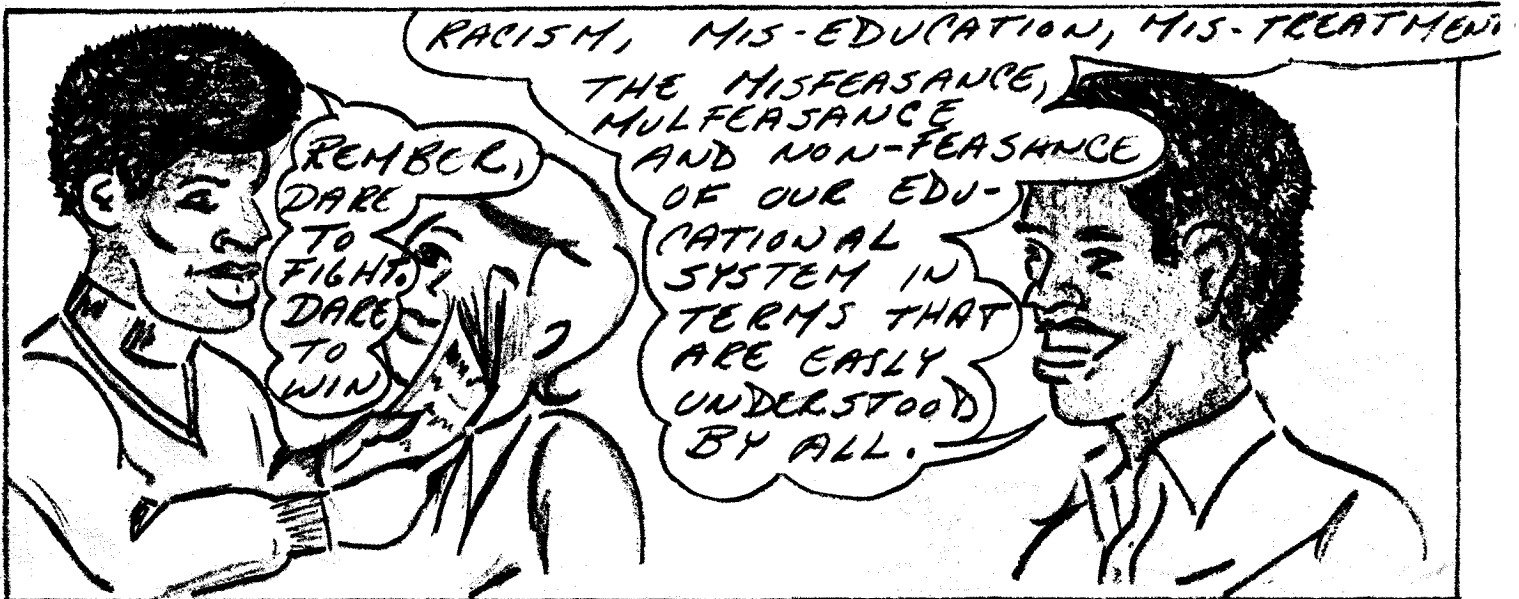 REMBER,
DARE
TO
FIGHT.
DARE
TO
WIN
RACISM, MIS-EDUCATION, MIS-TREATMENT
THE MISFEASANCE,
MULFEASANCE
AND NON-FEASANCE
OF OUR EDU-
CATIONAL
SYSTEM IN
TERMS THAT
ARE EASLY
UNDERSTOOD
BY ALL.